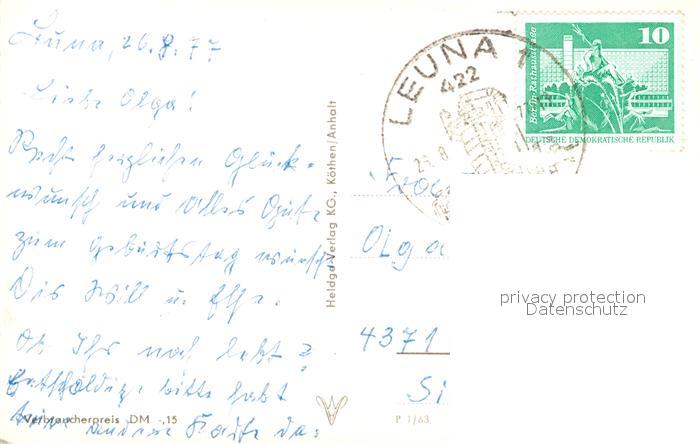 Leuna, 26.8.77
Liebe Olga!
Recht herzlichen Glück-
wunsch und Alles Gute
zum Geburtstag wünscht
Dir Willi u. Else.
Ob Ihr noch lebt?
Entschuldige bitte habt
keine andere Karte da:
Verbraucherpreis DM -,15
Heldge-Verlag KG., Köthen/Anhalt
P 1/63
LEUNA 1
422
10
Berlin-Rathausstraße
DEUTSCHE DEMOKRATISCHE REPUBLIK
Frau
Olga
4371
privacy protection
Datenschutz